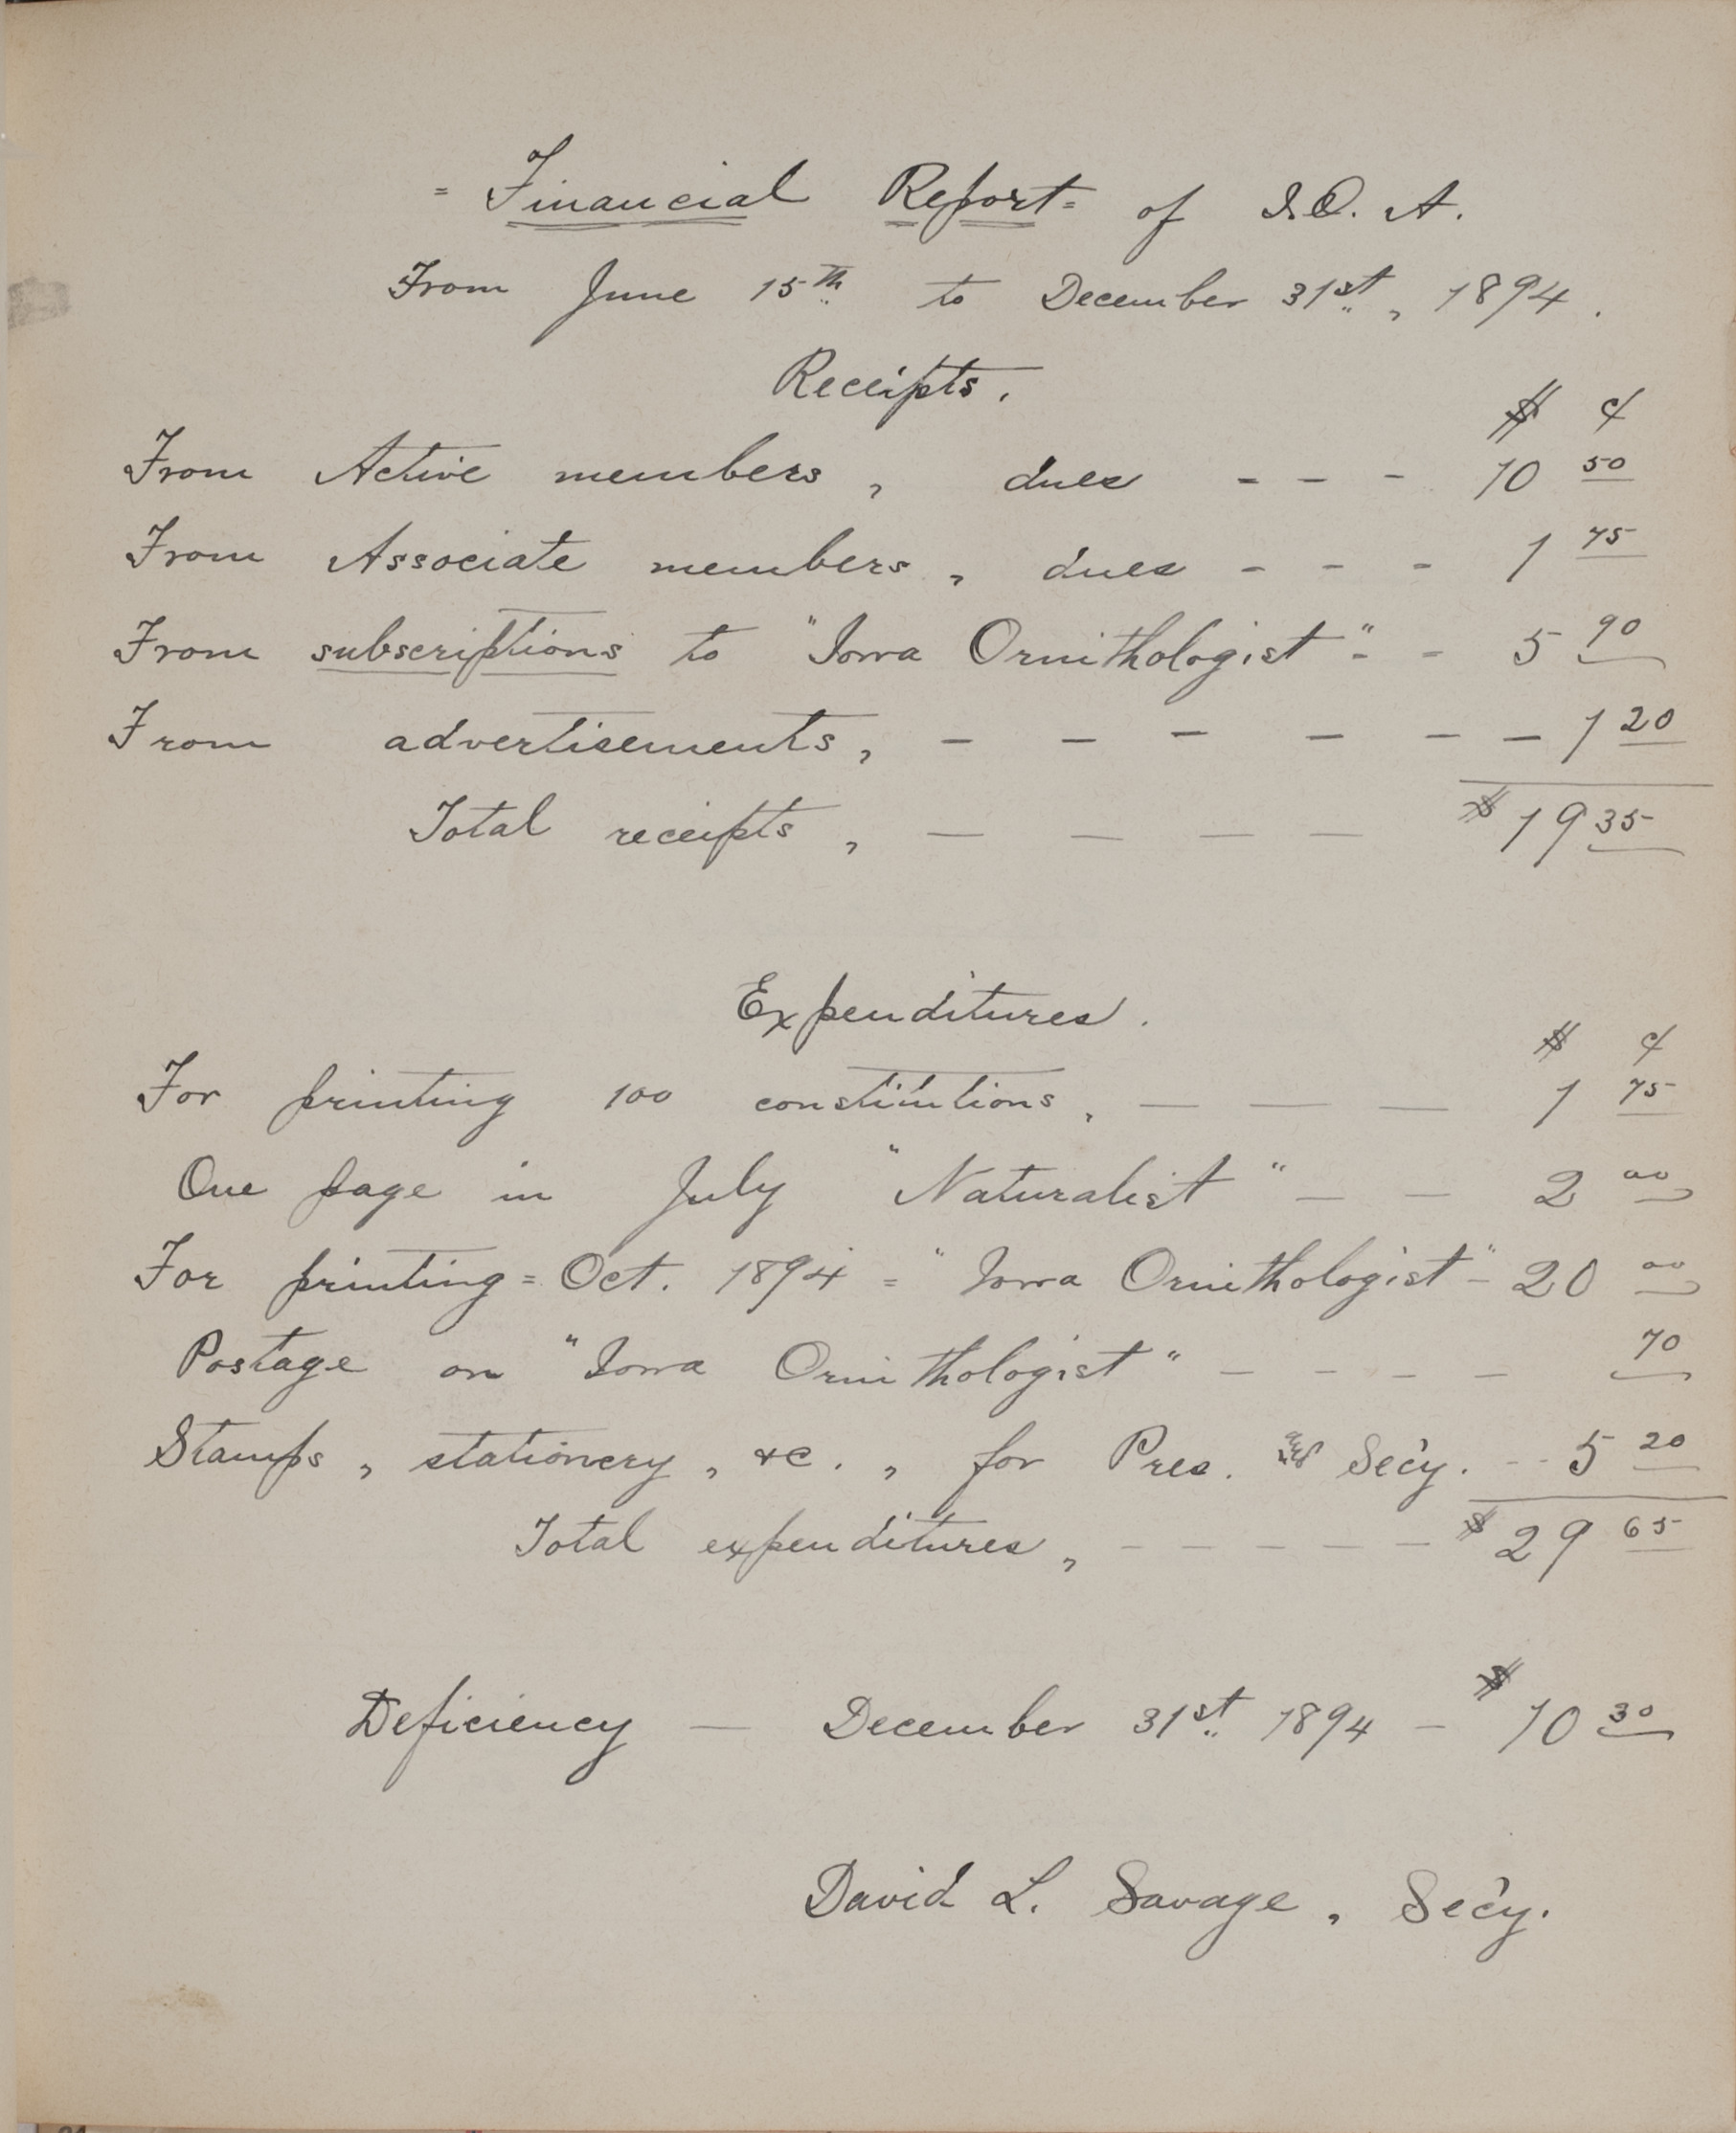 = Financial Report = of I.O.A.
From June 15th to December 31st, 1894.
Receipts.
$ ¢
From Active members, dues - - - 10 50
From Associate members, dues - - - 1 75
From subscriptions to "Iowa Ornithologist" - - 5 90
From advertisements, - - - - - - 1 20
Total receipts, - - - - $ 19 35
Expenditures.
$ ¢
For printing 100 constitutions, - - - 1 75
One page in July "Naturalist" - - 2 00
For printing = Oct. 1894 = "Iowa Ornithologist" - 20 00
Postage on "Iowa Ornithologist" - - - - 70
Stamps, stationery, &c., for Pres. Sec'y. - - 5 20
Total expenditures, - - - - - $ 29 65
Deficiency - December 31st 1894 - $ 10 30
David L. Savage, Sec'y.